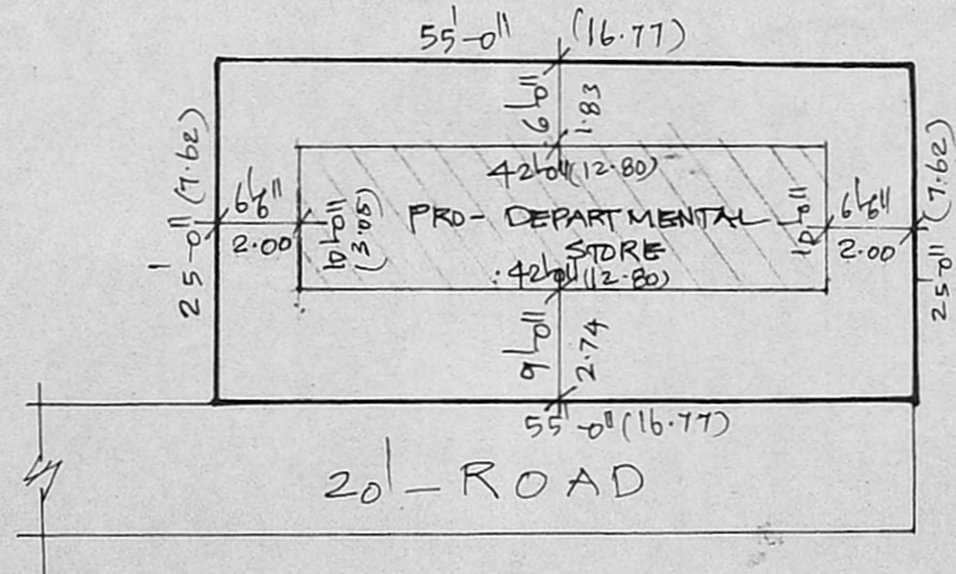 55'-0" (16.77)
6'-0"
1.83
25'-0" (7.62)
6'-6"
2.00
10'-0"
(3.05)
42'-0" (12.80)
PRO- DEPARTMENTAL
STORE
42'-0" (12.80)
10'-0"
6'-6"
2.00
25'-0" (7.62)
9'-0"
2.74
55'-0" (16.77)
20'-ROAD